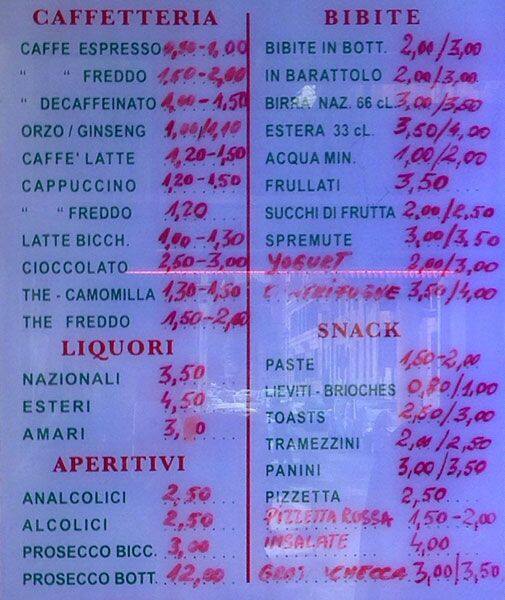 CAFFETTERIA
CAFFE ESPRESSO 0,90-1,00
" " FREDDO 1,50-2,00
" DECAFFEINATO 1,00-1,50
ORZO / GINSENG 1,00/1,10
CAFFE' LATTE 1,20-1,50
CAPPUCCINO 1,20-1,50
" " FREDDO 1,20
LATTE BICCH. 1,00-1,30
CIOCCOLATO 2,50-3,00
THE - CAMOMILLA 1,30-1,50
THE FREDDO 1,50-2,00
LIQUORI
NAZIONALI 3,50
ESTERI 4,50
AMARI
APERITIVI
ANALCOLICI 2,50
ALCOLICI 2,50
PROSECCO BICC. 3,00
PROSECCO BOTT. 12,00
BIBITE
BIBITE IN BOTT. 2,00/3,00
IN BARATTOLO 2,00/3,00
BIRRA NAZ. 66 cL. 3,00/3,50
ESTERA 33 cL. 3,50/4,00
ACQUA MIN. 1,00/2,00
FRULLATI 3,50
SUCCHI DI FRUTTA 2,00/2,50
SPREMUTE 3,00/3,50
YOGURT 2,00/3,00
3,50/4,00
SNACK
PASTE 1,50-2,00
LIEVITI - BRIOCHES 0,80/1,00
TOASTS 2,50/3,00
TRAMEZZINI 2,00/2,50
PANINI 3,00/3,50
PIZZETTA 2,50
PIZZETTA ROSSA 1,50-2,00
INSALATE 4,00
3,00/3,50